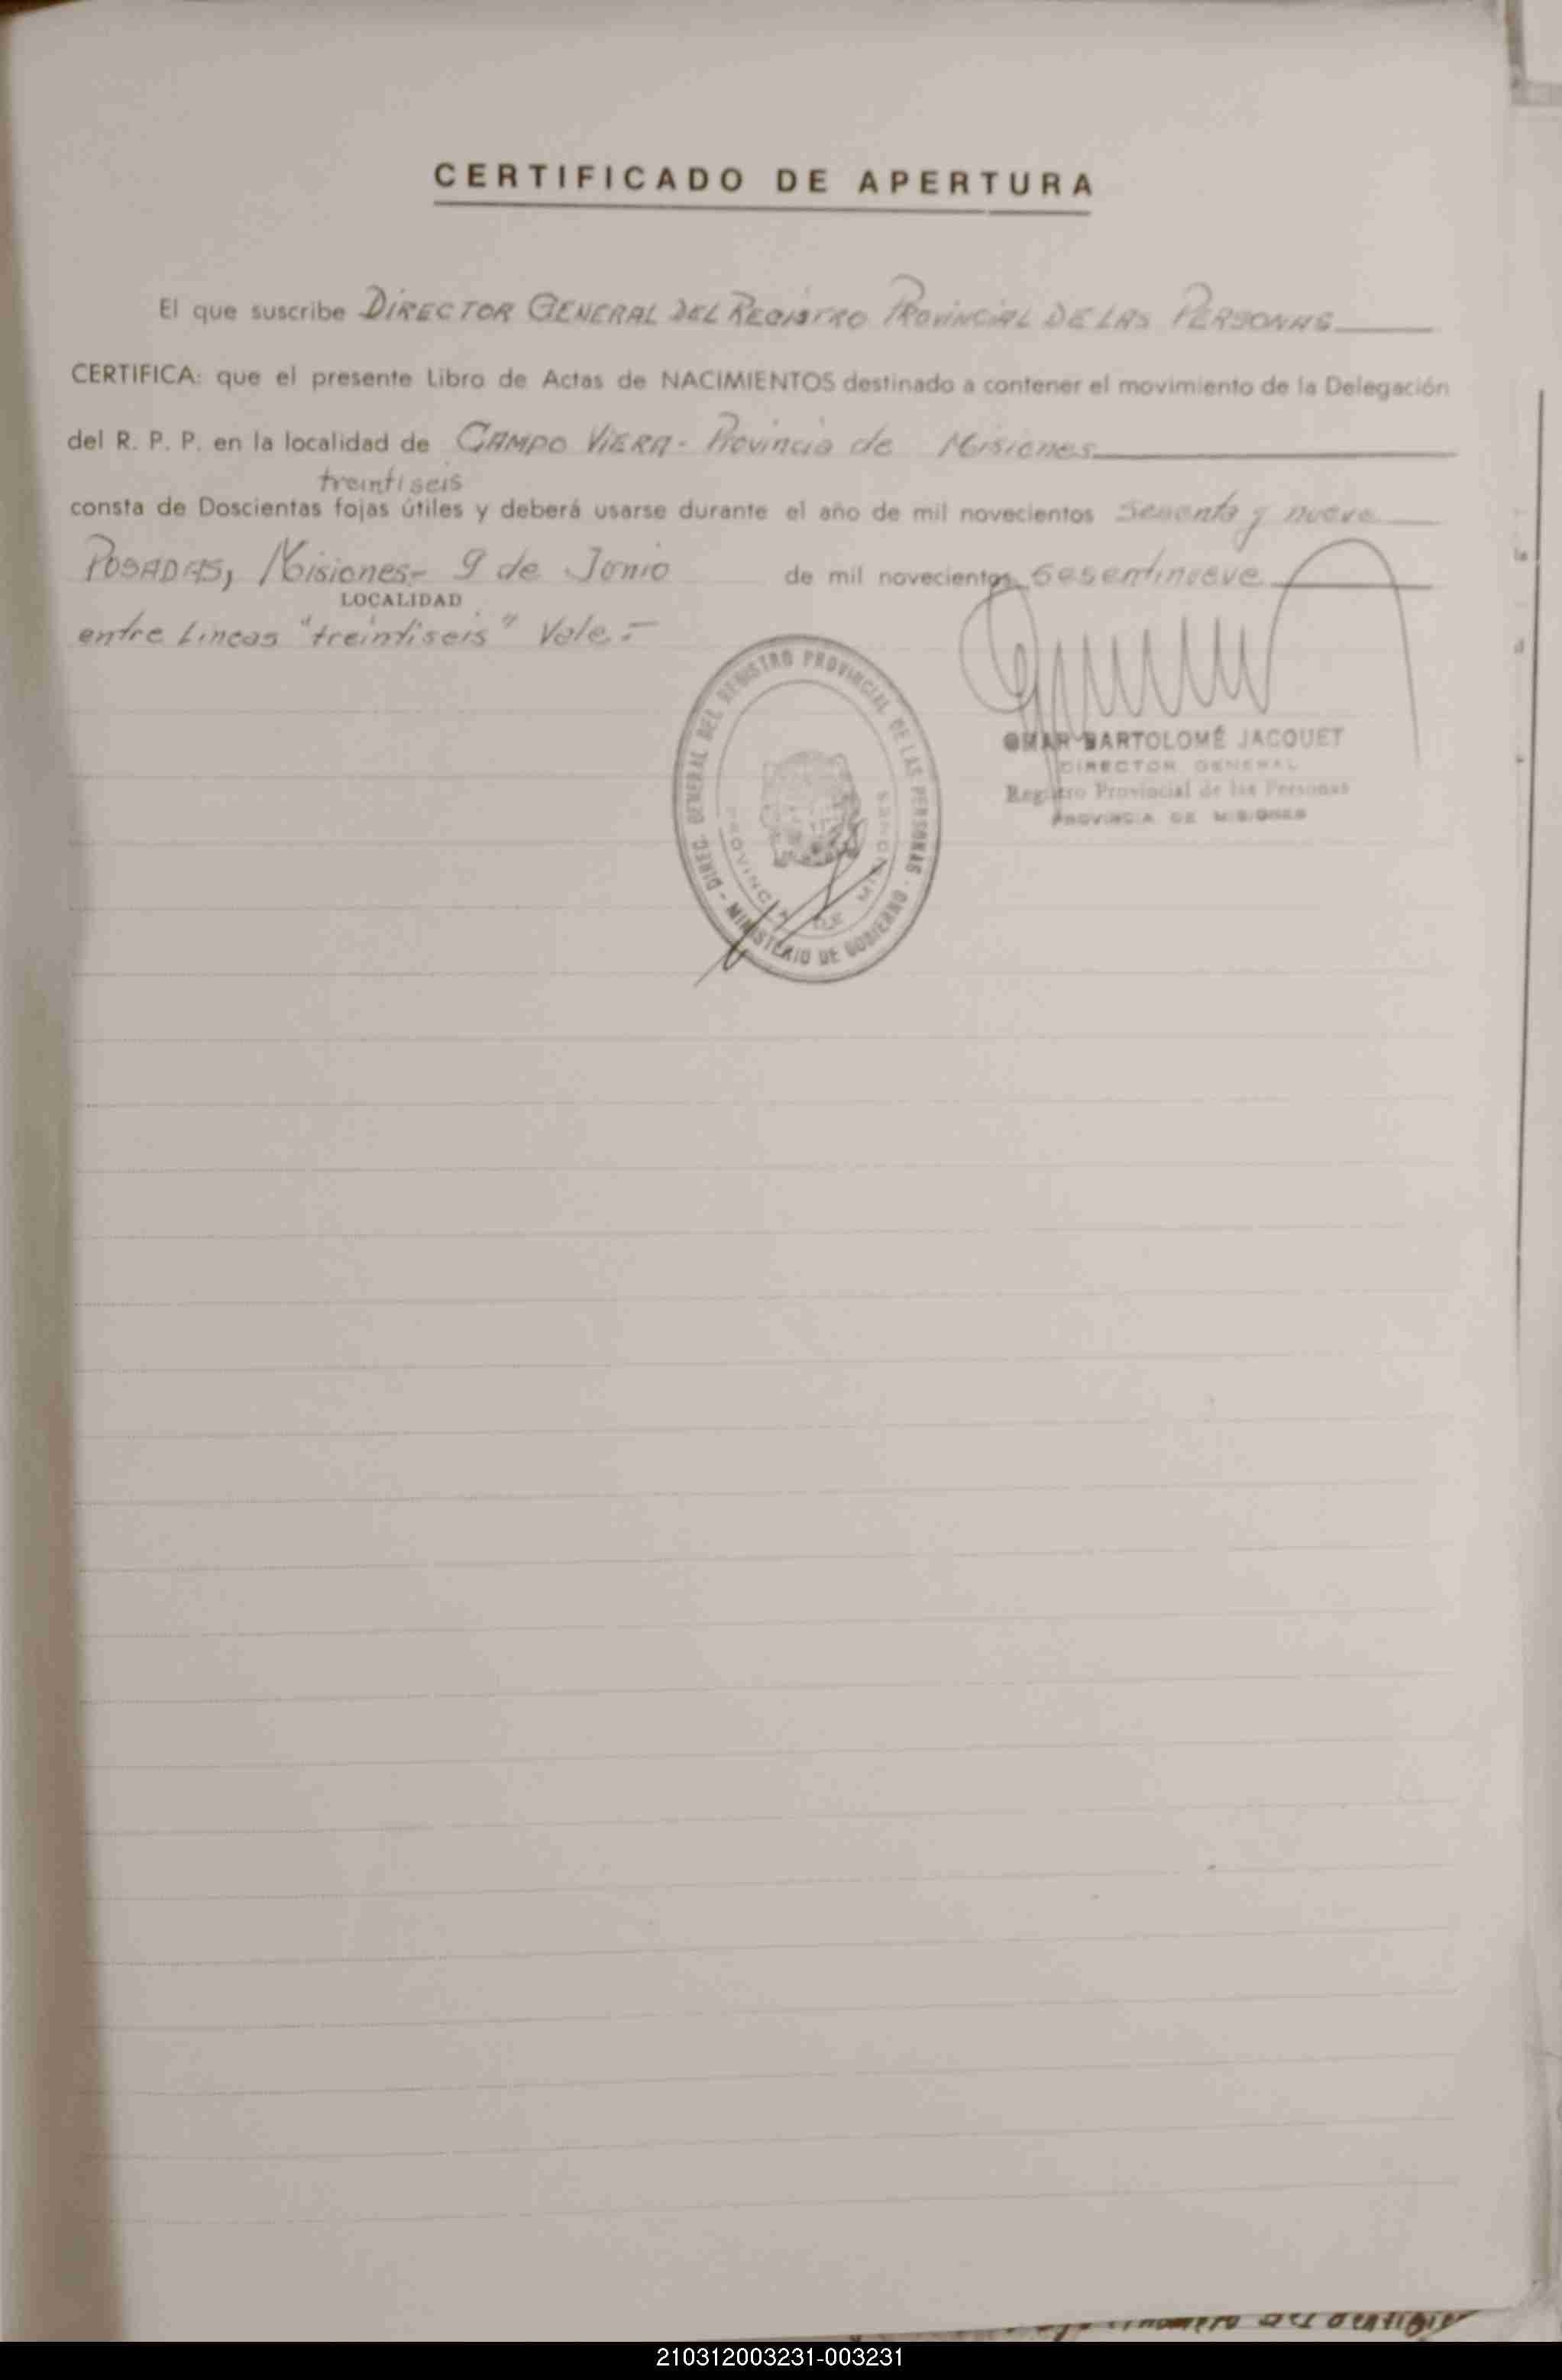 CERTIFICADO DE APERTURA
El que suscribe DIRECTOR GENERAL DEL REGISTRO PROVINCIAL DE LAS PERSONAS
CERTIFICA: que el presente Libro de Actas de NACIMIENTOS destinado a contener el movimiento de la Delegación
del R. P. P. en la localidad de CAMPO VIERA - Provincia de Misiones
treintiseis
consta de Doscientas fojas útiles y deberá usarse durante el año de mil novecientos sesenta y nueve
POSADAS, Misiones - 9 de Junio de mil novecientos sesentinueve
LOCALIDAD
entre Lineas "treintiseis" Vale.-
DIREC. GENERAL DEL REGISTRO PROVINCIAL DE LAS PERSONAS - MINISTERIO DE GOBIERNO -
PROVINCIA DE MISIONES
OMAR BARTOLOMÉ JACQUET
DIRECTOR GENERAL
Registro Provincial de las Personas
PROVINCIA DE MISIONES
210312003231-003231